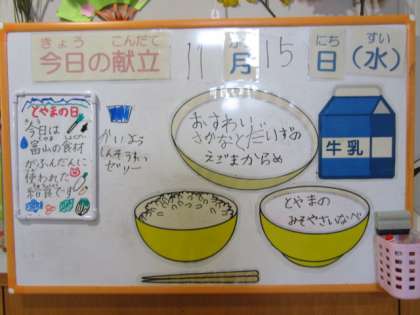 きょう こんだて
今日の献立
11 がつ 月 15 にち 日 すい (水)
とやまの日
きょう
今日は
富山の食材
がふんだんに
使われた
給食です
かいよう
ゼリー
おすわい
さかなとだいずの
えごまからめ
牛乳
とやまの
みそやさいなべ